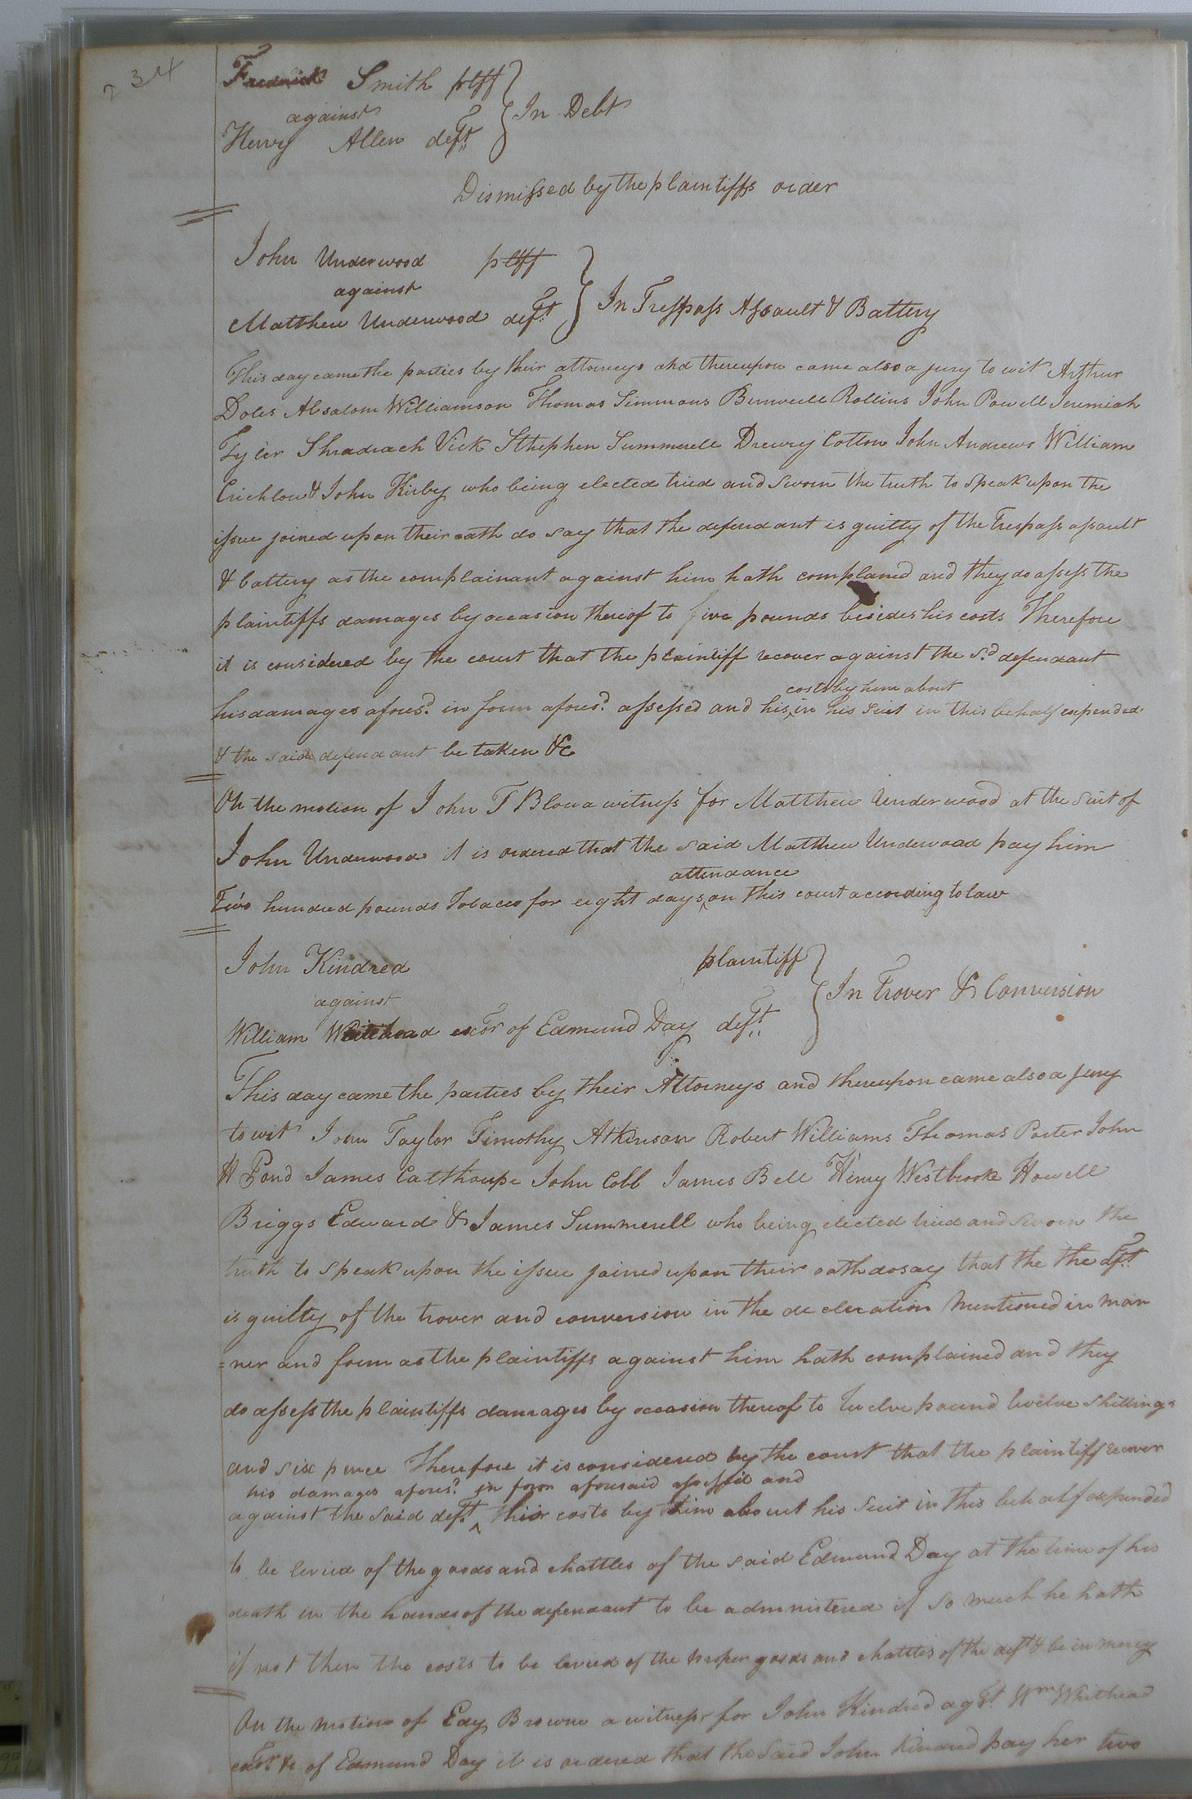 234
Fredrick Smith pltff
against
Henry Allen deft
In Debt
Dismissed by the plaintiffs order
John Underwood pltff
against
Matthew Underwood deft
In Tresspass Assault & Battery
This day came the parties by their attorneys and thereupon came also a jury to wit Arthur
Doles Absalom Williamson Thomas Simmons Burwell Rollins John Powell Jeremiah
Tyler Shradrach Vick Sthephen Summerell Drewry Cotton John Andrews William
Crichlow & John Kirby who being elected tried and sworn the truth to speak upon the
issue joined upon their oath do say that the defendant is guilty of the Trespass assault
& battery as the complainant against him hath complaned and they do assess the
plaintiffs damages by occasion thereof to five pounds besides his costs Therefore
it is considered by the court that the plaintiff recover against the sd defendant
costs by him about
his damages aforesd in form aforesd assessed and his in his Suit in this behalf expended
& the said defendant be taken &c
On the motion of John T Blow a witness for Matthew Underwood at the suit of
John Underwood it is ordered that the said Matthew Underwood pay him
attendance
Two hundred pounds Tobacco for eight days on this court according to law
John Kindred plaintiff
against
William Whitehead exor of Edmund Day deft
In Trover & Conversion
This day came the parties by their Attorneys and thereupon came also a jury
to wit John Taylor Timothy Atkinson Robert Williams Thomas Porter John
H Pond James Calthorpe John Cobb James Bell Henry Westbrook Howell
Briggs Edward & James Summerell who being elected tried and sworn the
truth to speak upon the issue joined upon their oath do say that the the deft
is guilty of the trover and conversion in the decleration Mentioned in man
=ner and form as the plaintiffs against him hath complained and they
do assess the plaintiffs damages by occasion thereof to Twelve pound twelve shillings
and six pence Therefore it is considered by the court that the plaintiff recover
his damages aforesd in form aforesaid assessed and
against the said deft his costs by him about his Suit in this behalf expended
to be levied of the goods and chattles of the said Edmund Day at the time of his
death in the hands of the defendant to be administered if so much he hath
if not then the costs to be levied of the proper goods and chattles of the deft & be in mercy
On the motion of Edy Browne a witness for John Kindred agst Wm Whitehead
exor &c of Edmund Day it is ordered that the said John Kindred pay her two